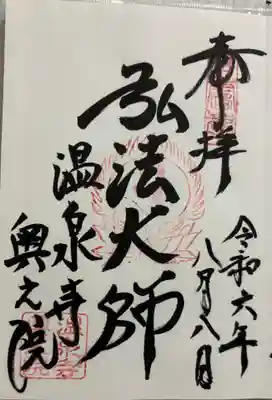 奉拝
令和六年
八月八日
弘法大師
温泉寺
奥之院